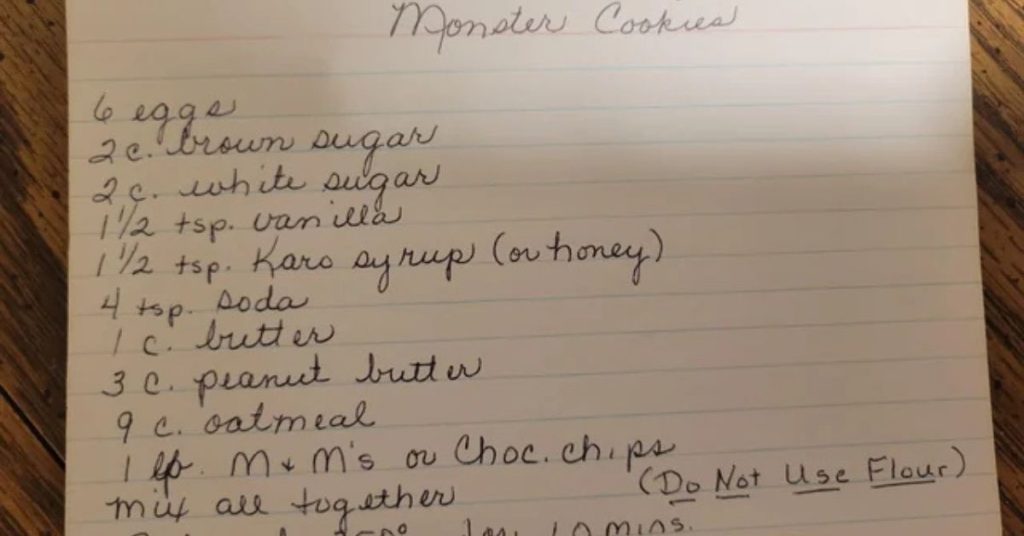 Monster Cookies
6 eggs
2 c. brown sugar
2 c. white sugar
1 1/2 tsp. vanilla
1 1/2 tsp. Karo syrup (or honey)
4 tsp. soda
1 c. butter
3 c. peanut butter
9 c. oatmeal
1 lb. M & M's or Choc. chips
mix all together (Do Not Use Flour)
350° for 10 mins.